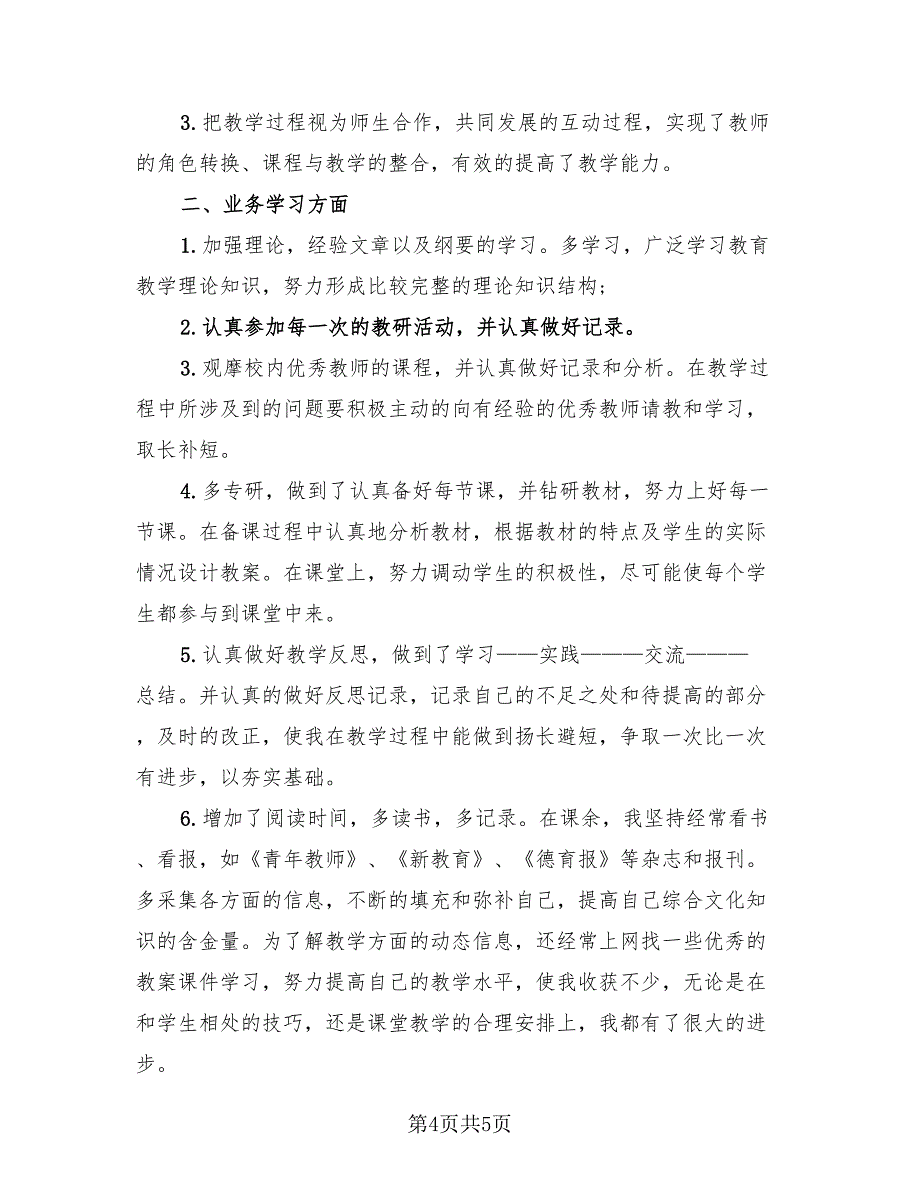 3. 把教学过程视为师生合作，共同发展的互动过程，实现了教师
的角色转换、课程与教学的整合，有效的提高了教学能力。
二、业务学习方面
1. 加强理论，经验文章以及纲要的学习。多学习，广泛学习教育
教学理论知识，努力形成比较完整的理论知识结构;
2. 认真参加每一次的教研活动，并认真做好记录。
3. 观摩校内优秀教师的课程，并认真做好记录和分析。在教学过
程中所涉及到的问题要积极主动的向有经验的优秀教师请教和学习，
取长补短。
4. 多专研，做到了认真备好每节课，并钻研教材，努力上好每一
节课。在备课过程中认真地分析教材，根据教材的特点及学生的实际
情况设计教案。在课堂上，努力调动学生的积极性，尽可能使每个学
生都参与到课堂中来。
5. 认真做好教学反思，做到了学习——实践———交流———
总结。并认真的做好反思记录，记录自己的不足之处和待提高的部分
，及时的改正，使我在教学过程中能做到扬长避短，争取一次比一次
有进步，以夯实基础。
6. 增加了阅读时间，多读书，多记录。在课余，我坚持经常看书
、看报，如《青年教师》、《新教育》、《德育报》等杂志和报刊。
多采集各方面的信息，不断的填充和弥补自己，提高自己综合文化知
识的含金量。为了解教学方面的动态信息，还经常上网找一些优秀的
教案课件学习，努力提高自己的教学水平，使我收获不少，无论是在
和学生相处的技巧，还是课堂教学的合理安排上，我都有了很大的进
步。
第4页共5页